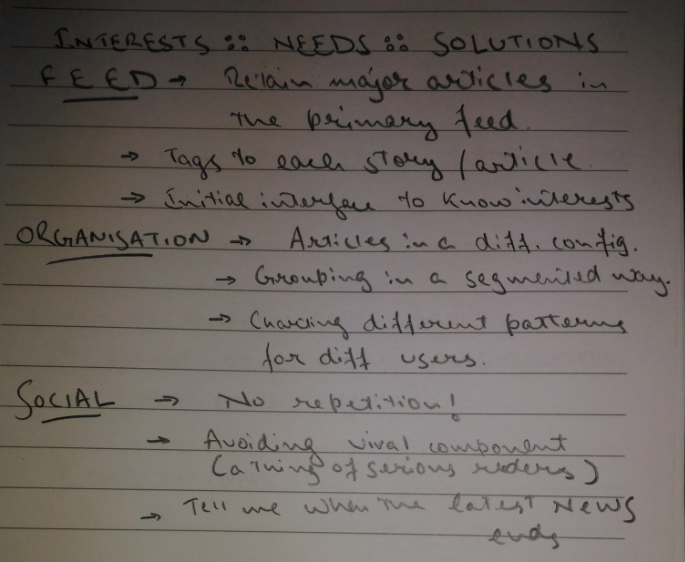 INTERESTS :: NEEDS :: SOLUTIONS
FEED → Retain major articles in
the primary feed.
→ Tags to each story / article.
→ Initial interface to know interests
ORGANISATION → Articles in a diff. config.
→ Grouping in a segmented way.
→ Charting different patterns
for diff users.
SOCIAL → No repetition!
→ Avoiding viral component
( of serious )
→ Tell me when the latest NEWS
ends